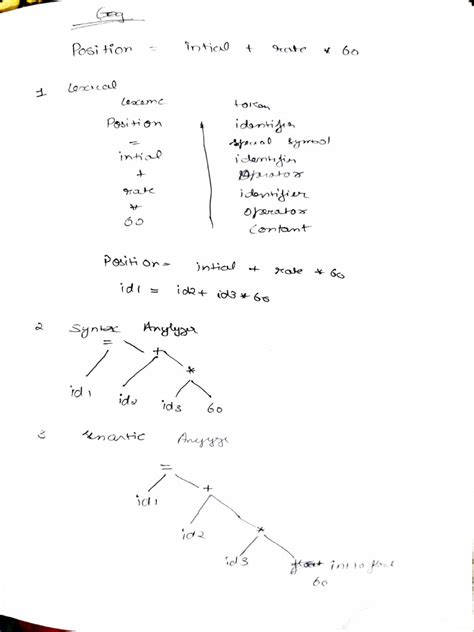 Eeg
Position = intial + rate * 60
1 Lexical
Lexeme token
Position identifier
= special symbol
intial identifier
+ operator
rate identifier
* operator
60 contant
Position = intial + rate * 60
id1 = id2 + id3 * 60
2 Syntex Anylyzer
= +
*
id1 id2 id3 60
3 Semartic Anyyze
=
id1 +
id2 *
id3 int to float
60